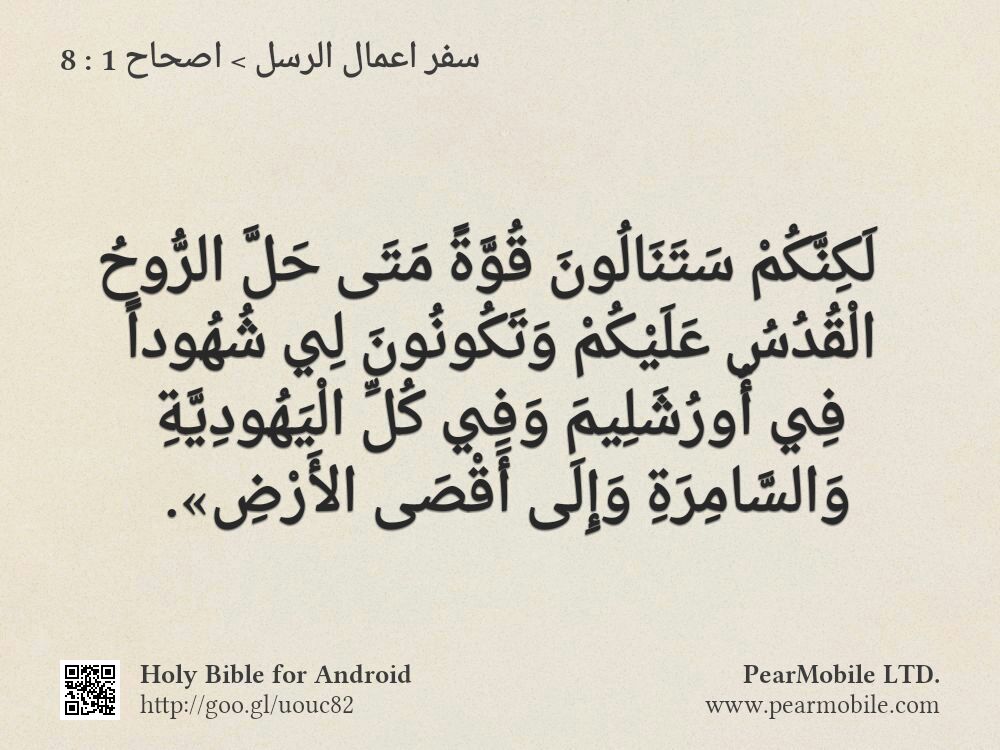 سفر اعمال الرسل > اصحاح 1 : 8
لَكِنَّكُمْ سَتَنَالُونَ قُوَّةً مَتَى حَلَّ الرُّوحُ
الْقُدُسُ عَلَيْكُمْ وَتَكُونُونَ لِي شُهُوداً
فِي أُورُشَلِيمَ وَفِي كُلِّ الْيَهُودِيَّةِ
وَالسَّامِرَةِ وَإِلَى أَقْصَى الأَرْضِ».
Holy Bible for Android
http://goo.gl/uouc82
PearMobile LTD.
www.pearmobile.com